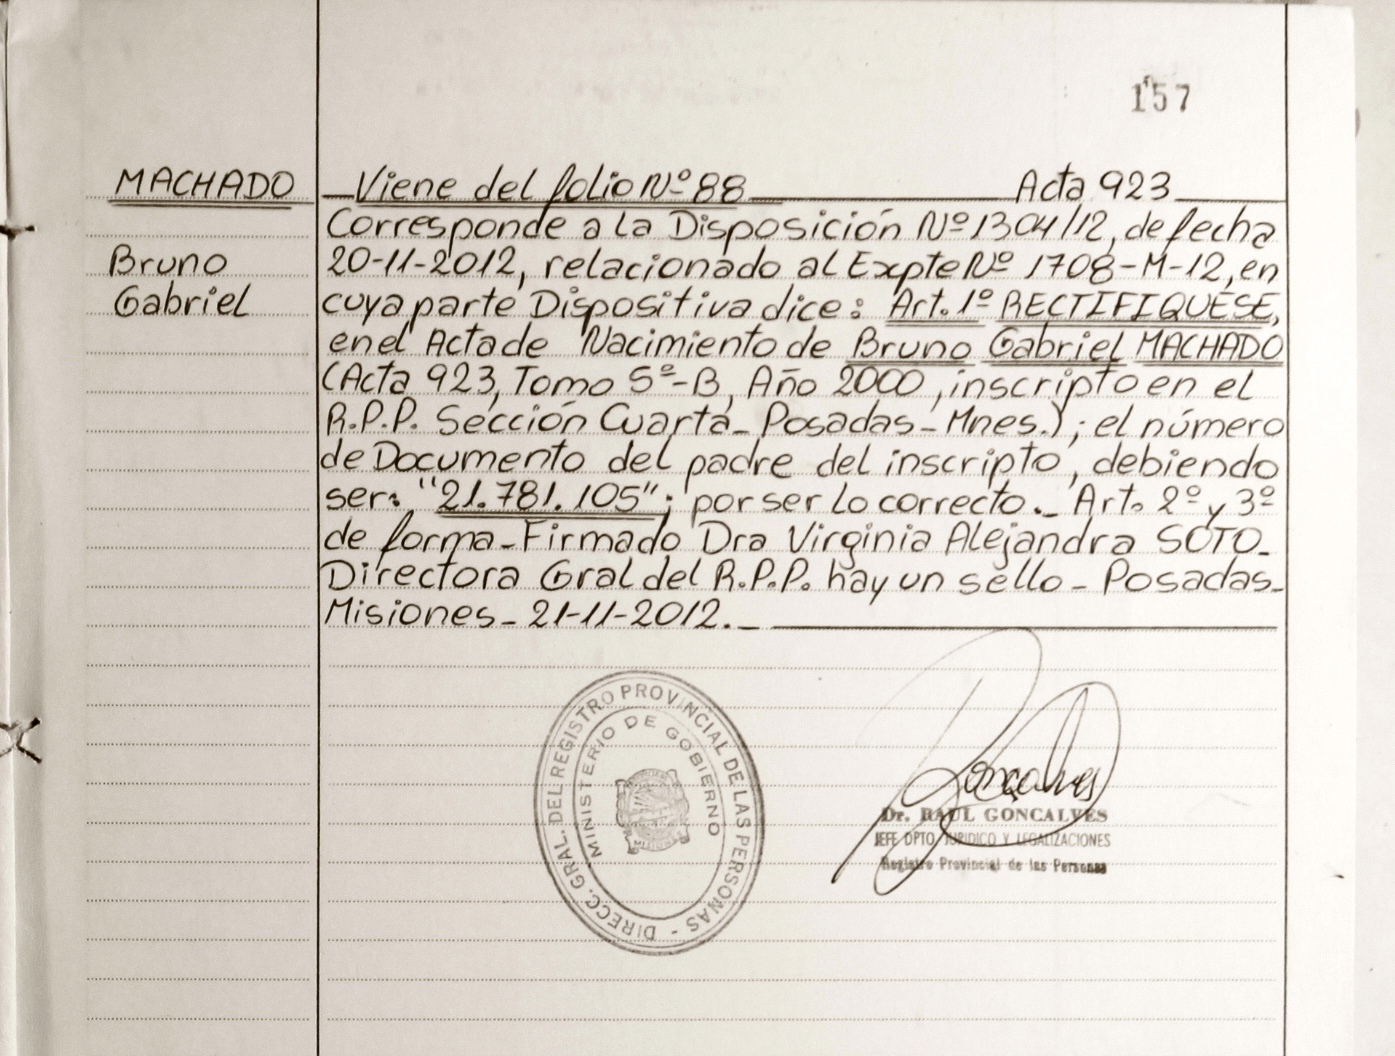 157
MACHADO
Bruno
Gabriel
Viene del folio Nº 88 Acta 923
Corresponde a la Disposición Nº 1304/12, de fecha
20-11-2012, relacionado al Expte Nº 1708-M-12, en
cuya parte Dispositiva dice: Art. 1º RECTIFIQUESE,
en el Acta de Nacimiento de Bruno Gabriel MACHADO
(Acta 923, Tomo 5º-B, Año 2000, inscripto en el
R.P.P. Sección Cuarta- Posadas- Mnes.); el número
de Documento del padre del inscripto, debiendo
ser: "21.781.105"; por ser lo correcto._ Art. 2º y 3º
de forma-Firmado Dra Virginia Alejandra SOTO-
Directora Gral del R.P.P. hay un sello - Posadas-
Misiones- 21-11-2012._
DIRECC. GRAL. DEL REGISTRO PROVINCIAL DE LAS PERSONAS -
MINISTERIO DE GOBIERNO
MISIONES
Goncalves
Dr. RAUL GONCALVES
JEFE DPTO JURIDICO Y LEGALIZACIONES
Registro Provincial de las Personas